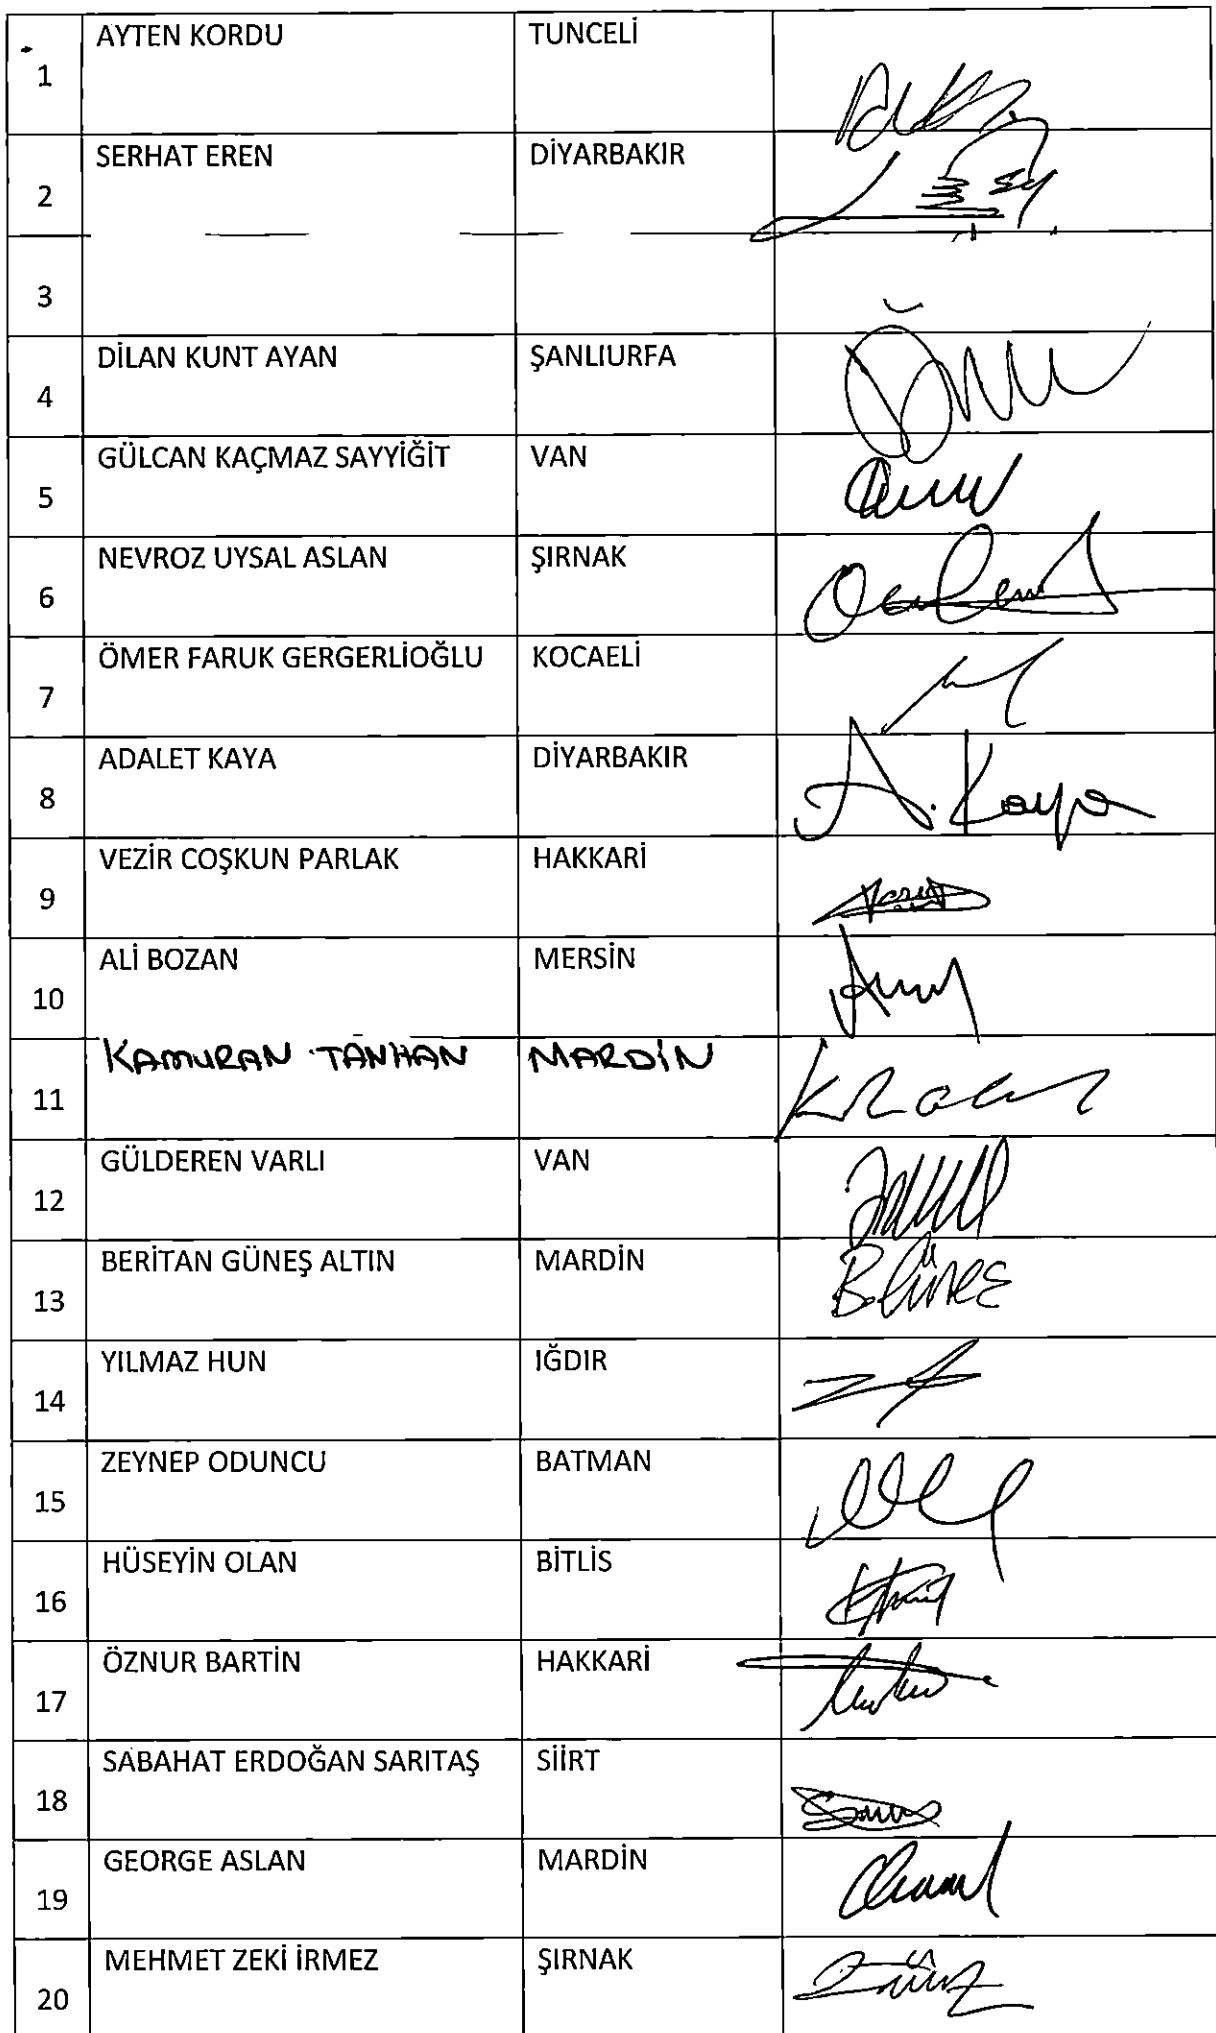 1 AYTEN KORDU TUNCELİ
2 SERHAT EREN DİYARBAKIR
3
4 DİLAN KUNT AYAN ŞANLIURFA
5 GÜLCAN KAÇMAZ SAYYİĞİT VAN
6 NEVROZ UYSAL ASLAN ŞIRNAK
7 ÖMER FARUK GERGERLİOĞLU KOCAELİ
8 ADALET KAYA DİYARBAKIR A. Kaya
9 VEZİR COŞKUN PARLAK HAKKARİ
10 ALİ BOZAN MERSİN
11 KAMURAN TANHAN MARDİN
12 GÜLDEREN VARLI VAN
13 BERİTAN GÜNEŞ ALTIN MARDİN
14 YILMAZ HUN IĞDIR
15 ZEYNEP ODUNCU BATMAN
16 HÜSEYİN OLAN BİTLİS
17 ÖZNUR BARTİN HAKKARİ
18 SABAHAT ERDOĞAN SARITAŞ SİİRT
19 GEORGE ASLAN MARDİN
20 MEHMET ZEKİ İRMEZ ŞIRNAK